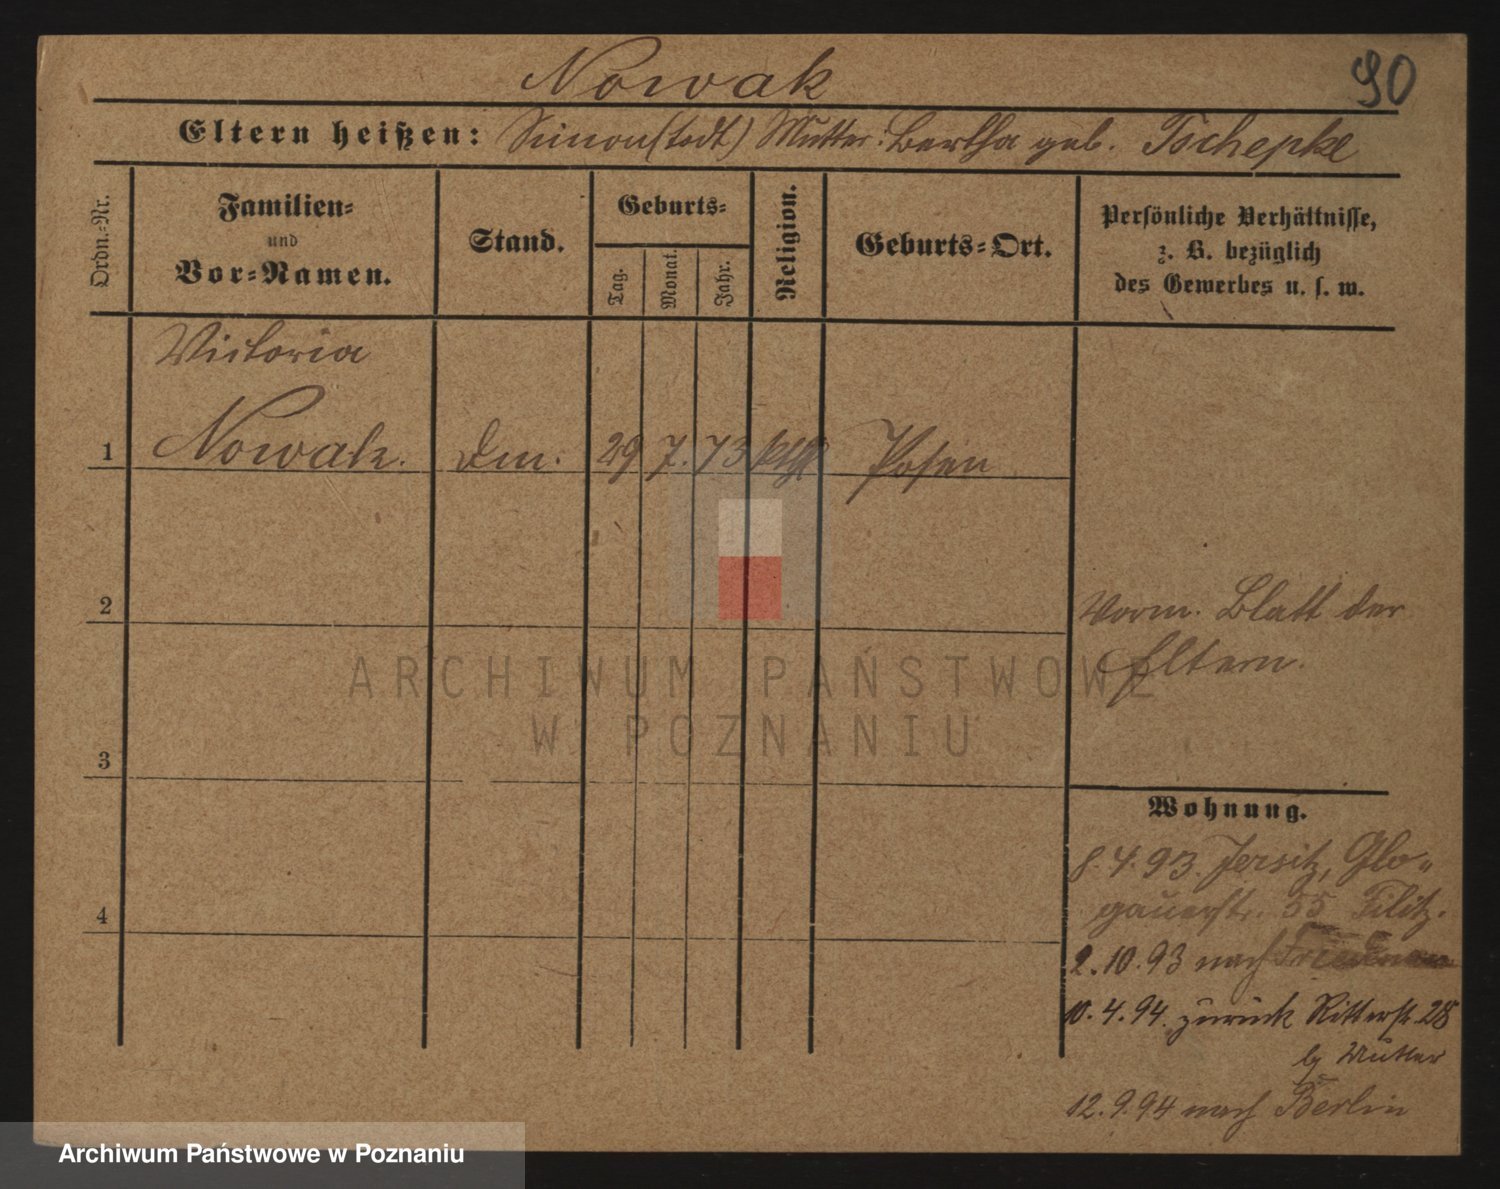 Nowak
90
Eltern heißen: Simon (todt) Mutter: Bertha geb. Tschepke
Ordn.-Nr.
Familien-
und
Vor-Namen.
Stand.
Geburts-
Tag.
Monat.
Jahr.
Religion.
Geburts-Ort.
Persönliche Verhältnisse,
z. B. bezüglich
des Gewerbes u. s. w.
Victoria
1 Nowak. 29 7. 73 kth Posen
2
Vorm. Blatt der
Eltern.
3
Wohnung.
8.4.93. Jersitz, Glo-
gauerstr. 55
4
2.10.93 nach
10.4.94. zurück Ritterstr. 28
Mutter
12.9.94 nach Berlin
ARCHIWUM PAŃSTWOWE
W POZNANIU
Archiwum Państwowe w Poznaniu